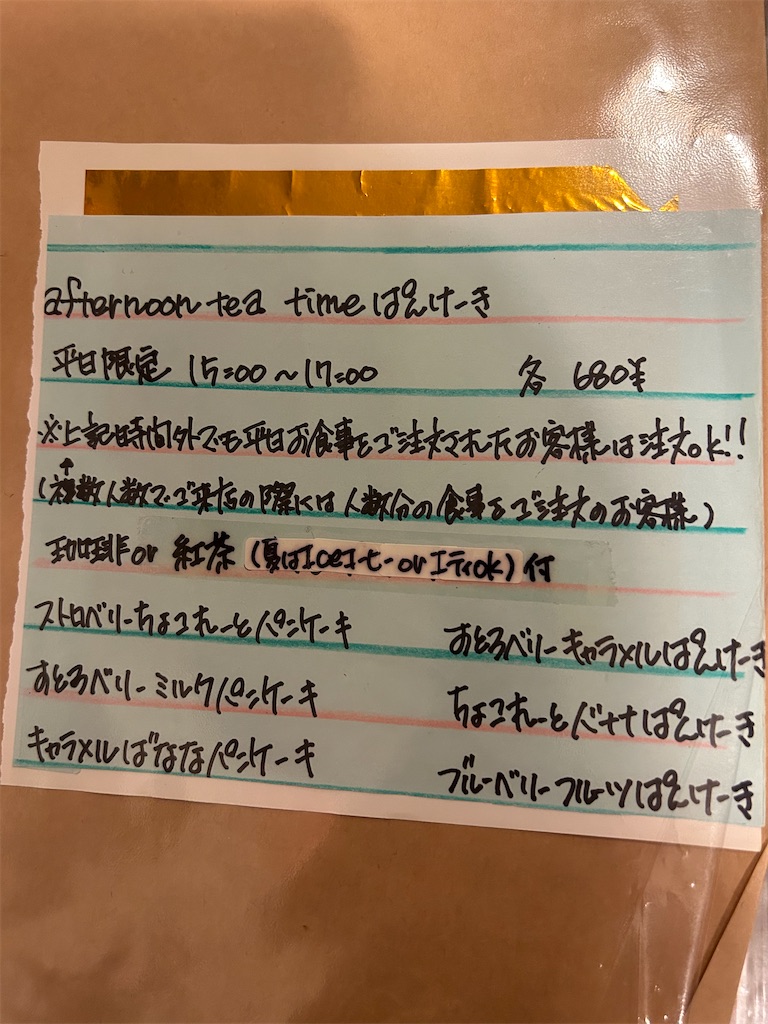 afternoon tea timeぱんけーき
平日限定 15:00～17:00 各 680¥
※上記時間外でも平日お食事をご注文されたお客様は注文ok!!
↑
(複数人数でご来店の際には人数分の食事をご注文のお客様)
珈琲or 紅茶 (夏はIceIせーor Iティok) 付
ストロベリーちょこれーとパンケーキ すとろベリーキャラメルぱんけーき
すとろベリーミルクパンケーキ ちょこれーとバナナぱんけーき
キャラメルばななパンケーキ ブルーベリーフルーツぱんけーき